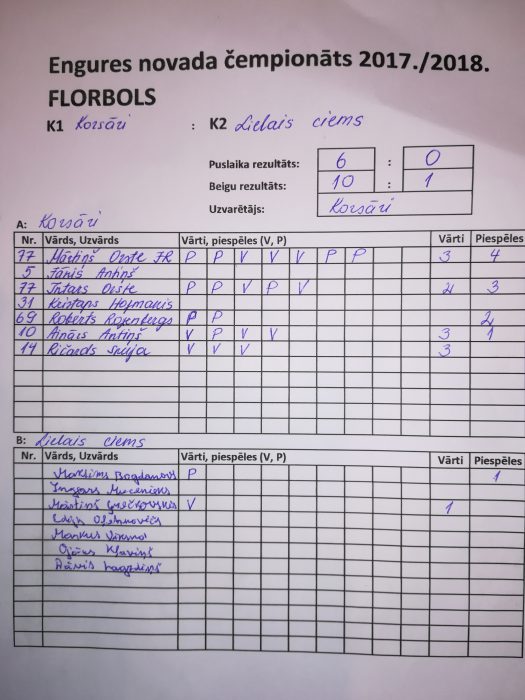 Engures novada čempionāts 2017./2018.
FLORBOLS
K1 Korsāri : K2 Lielais ciems
Puslaika rezultāts: 6 : 0
Beigu rezultāts: 10 : 1
Uzvarētājs: Korsāri
A: Korsāri
Nr. Vārds, Uzvārds Vārti, piespēles (V, P) Vārti Piespēles
77 Mārtiņš Oste JR P P V V V P P 3 4
5 Jānis Antiņš
77 Intars Oste P P V P V 3
31 Kristaps Hofmanis
69 Roberts Rozenbergs P P 2
10 Ainārs Antiņš V P V V 3 1
14 Ričards V V V 3
B: Lielais ciems
Nr. Vārds, Uzvārds Vārti, piespēles (V, P) Vārti Piespēles
Maksims Bogdanovs P 1
Ingars
Mārtiņš V 1
Markus
Kļaviņš
Dāvis